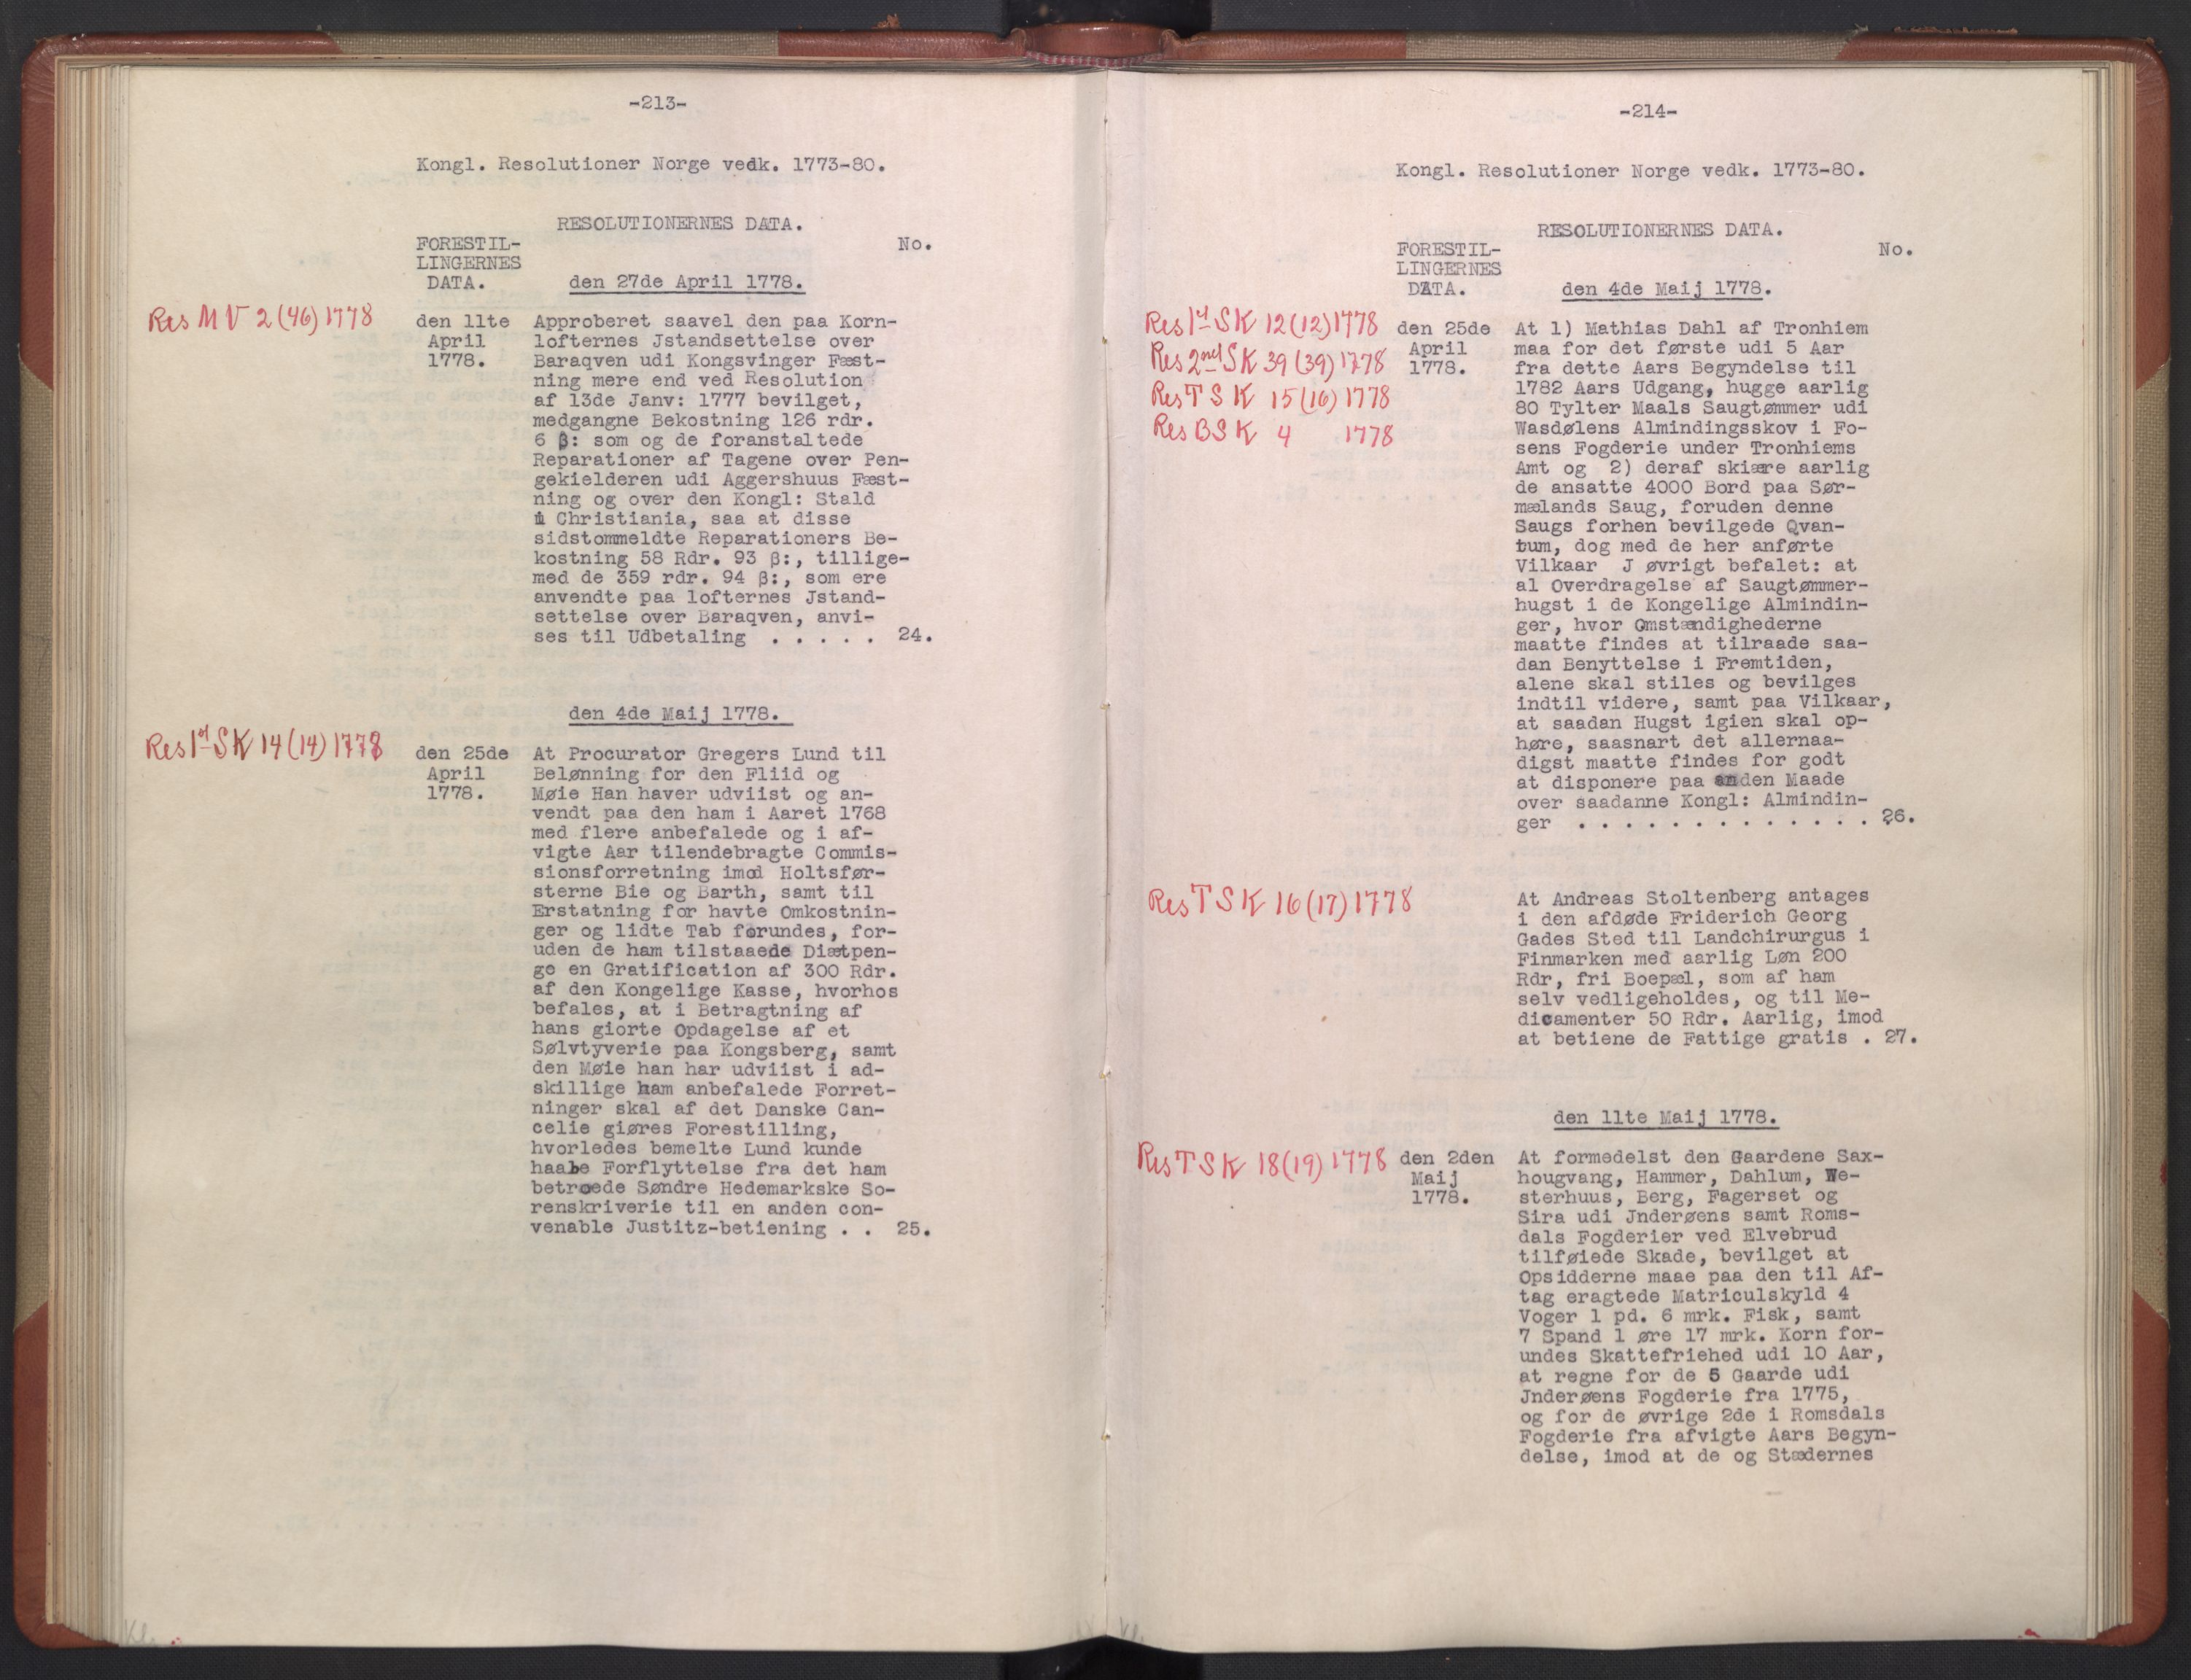 -213-
Kongl. Resolutioner Norge vedk. 1773-80.
RESOLUTIONERNES DATA.
FORESTIL-
LINGERNES
DATA.
No.
den 27de April 1778.
Res M V 2 (46) 1778
den 11te
April
1778.
Approberet saavel den paa Korn-
lofternes Jstandsettelse over
Baraqven udi Kongsvinger Fæst-
ning mere end ved Resolution
af 13de Janv: 1777 bevilget,
medgangne Bekostning 126 rdr.
6 β: som og de foranstaltede
Reparationer af Tagene over Pen-
gekielderen udi Aggershuus Fæst-
ning og over den Kongl: Stald
i Christiania, saa at disse
sidstommeldte Reparationers Be-
kostning 58 Rdr. 93 β:, tillige-
med de 359 rdr. 94 β:, som ere
anvendte paa lofternes Jstand-
settelse over Baraqven, anvi-
ses til Udbetaling . . . . . 24.
den 4de Maij 1778.
Res 1st SK 14 (14) 1778
den 25de
April
1778.
At Procurator Gregers Lund til
Belønning for den Fliid og
Møie Han haver udviist og an-
vendt paa den ham i Aaret 1768
med flere anbefalede og i af-
vigte Aar tilendebragte Commis-
sionsforretning imod Holtsfør-
sterne Bie og Barth, samt til
Erstatning for havte Omkostnin-
ger og lidte Tab forundes, for-
uden de ham tilstaaede Diætpen-
ge en Gratification af 300 Rdr.
af den Kongelige Kasse, hvorhos
befales, at i Betragtning af
hans giorte Opdagelse af et
Sølvtyverie paa Kongsberg, samt
den Møie han har udviist i ad-
skillige ham anbefalede Forret-
ninger skal af det Danske Can-
celie giøres Forestilling,
hvorledes bemelte Lund kunde
haabe Forflyttelse fra det ham
betroede Søndre Hedemarkske So-
renskriverie til en anden con-
venable Justitz-betiening . . 25.
-214-
Kongl. Resolutioner Norge vedk. 1773-80.
RESOLUTIONERNES DATA.
FORESTIL-
LINGERNES
DATA.
No.
den 4de Maij 1778.
Res 1st SK 12 (12) 1778
Res 2net SK 39 (39) 1778
Res T S K 15 (16) 1778
Res B S K 4 1778
den 25de
April
1778.
At 1) Mathias Dahl af Tronhiem
maa for det første udi 5 Aar
fra dette Aars Begyndelse til
1782 Aars Udgang, hugge aarlig
80 Tylter Maals Saugtømmer udi
Wasdølens Almindingsskov i Fo-
sens Fogderie under Tronhiems
Amt og 2) deraf skiære aarlig
de ansatte 4000 Bord paa Sør-
mælands Saug, foruden denne
Saugs forhen bevilgede Qvan-
tum, dog med de her anførte
Vilkaar J øvrigt befalet: at
al Overdragelse af Saugtømmer-
hugst i de Kongelige Almindin-
ger, hvor Omstændighederne
maatte findes at tilraade saa-
dan Benyttelse i Fremtiden,
alene skal stiles og bevilges
indtil videre, samt paa Vilkaar,
at saadan Hugst igien skal op-
høre, saasnart det allernaa-
digst maatte findes for godt
at disponere paa anden Maade
over saadanne Kongl: Almindin-
ger . . . . . . . . . . . . . 26.
Res T S K 16 (17) 1778
At Andreas Stoltenberg antages
i den afdøde Friderich Georg
Gades Sted til Landchirurgus i
Finmarken med aarlig Løn 200
Rdr, fri Boepæl, som af ham
selv vedligeholdes, og til Me-
dicamenter 50 Rdr. Aarlig, imod
at betiene de Fattige gratis . 27.
den 11te Maij 1778.
Res T S K 18 (19) 1778
den 2den
Maij
1778.
At formedelst den Gaardene Sax-
hougvang, Hammer, Dahlum, We-
sterhuus, Berg, Fagerset og
Sira udi Jnderøens samt Roms-
dals Fogderier ved Elvebrud
tilføiede Skade, bevilget at
Opsidderne maae paa den til Af-
tag eragtede Matriculskyld 4
Voger 1 pd. 6 mrk. Fisk, samt
7 Spand 1 øre 17 mrk. Korn for-
undes Skattefriehed udi 10 Aar,
at regne for de 5 Gaarde udi
Jnderøens Fogderie fra 1775,
og for de øvrige 2de i Romsdals
Fogderie fra afvigte Aars Begyn-
delse, imod at de og Stædernes